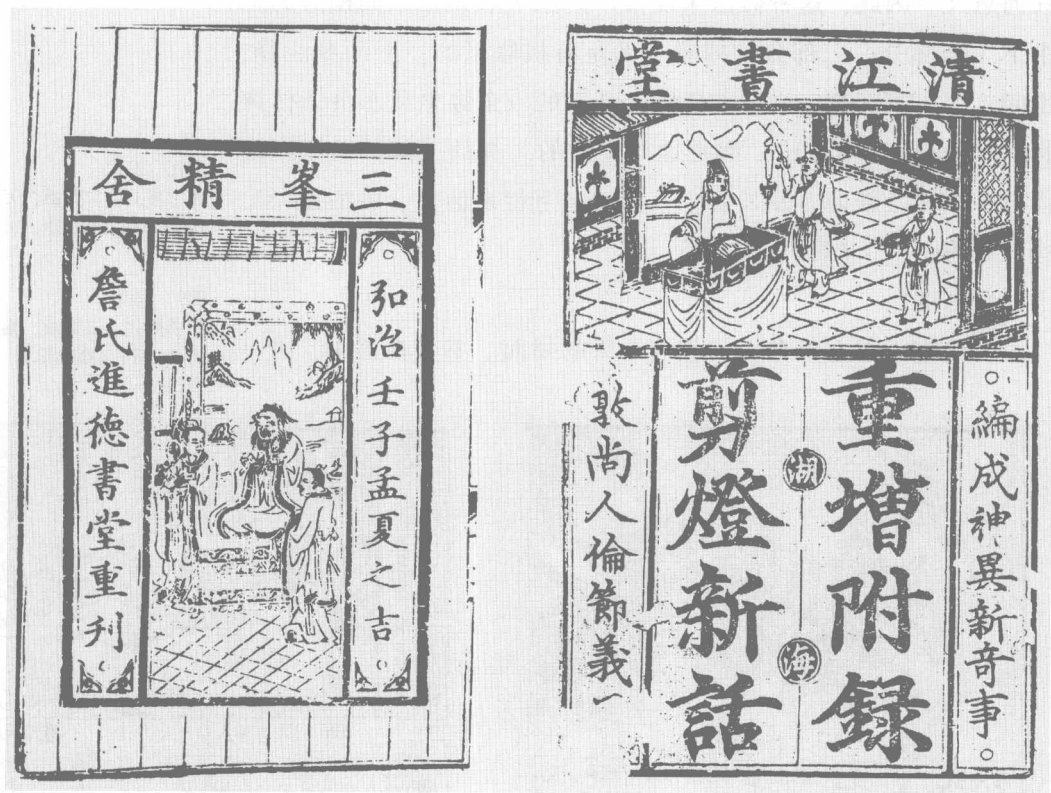 清江書堂
編成神異新竒事
重增附録
湖海
剪燈新話
敦尚人倫節義
三峯精舍
弘治壬子孟夏之吉
詹氏進徳書堂重刊